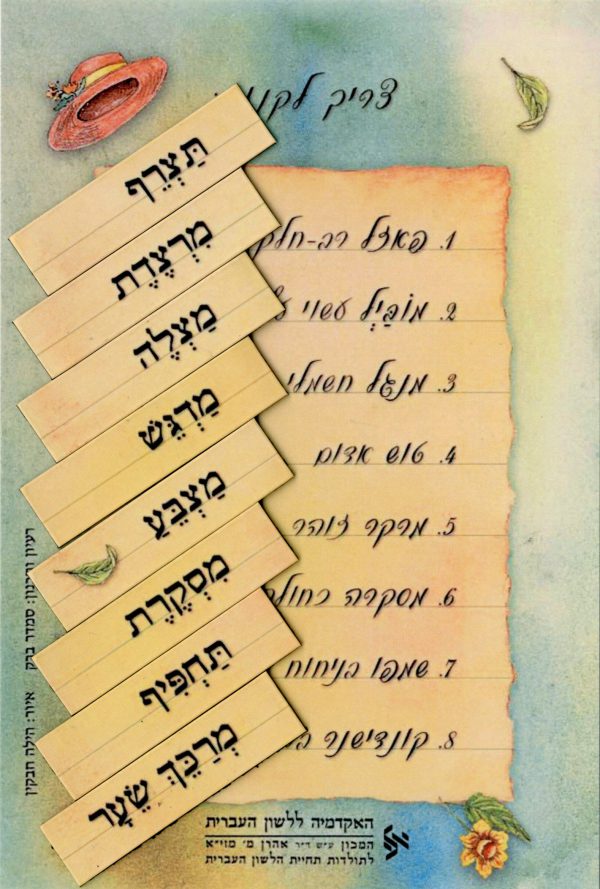 צריך לקנו
1. פאזל רב-חלק
2. מוֹבַּיְל עשוי
3. מנגל חשמלי
4. טוש אדום
5. מרקר זוהר
6. מסקרה כחול
7. שמפו בניחוח
8. קונדישנר
תַּצְרֵף
מִרְצֶדֶת
מַצְלֶה
מַדְגֵּשׁ
מַצְבֵּעַ
מִסְקֶרֶת
תַּחְפִּיף
מְרַכֵּךְ שֵׂעָר
סמדר ברק איור: הילה חבקין
האקדמיה ללשון העברית
המכון ע״ש ד״ר אהרן מ׳ מזי״א
לתולדות תחיית הלשון העברית